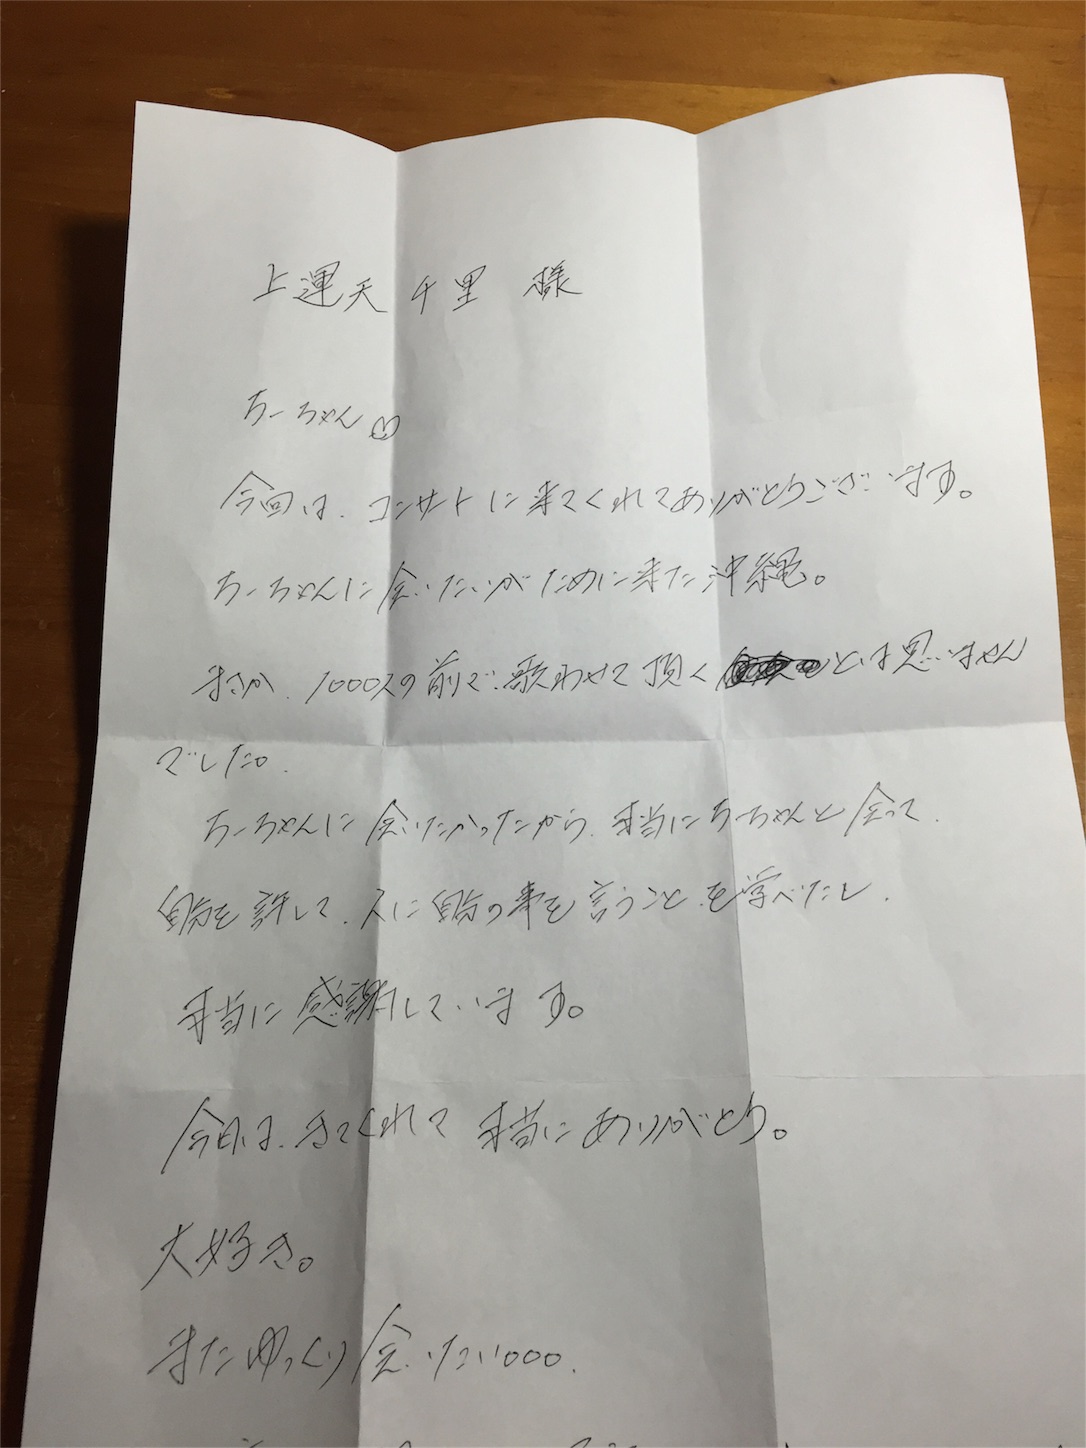 上運天 千里 様
ちーちゃん♡
今回は、コンサートに来てくれてありがとうございます。
ちーちゃんに会いたいがために来た沖縄。
まさか、1000人の前で歌わせて頂く とは思いません
でした。
ちーちゃんに会いたかったから、本当にちーちゃんと会って、
自分を許して、人に自分の事を言うこと、を学べたし、
本当に感謝しています。
今日は、きてくれて本当にありがとう。
大好き。
またゆっくり会いたい。。。